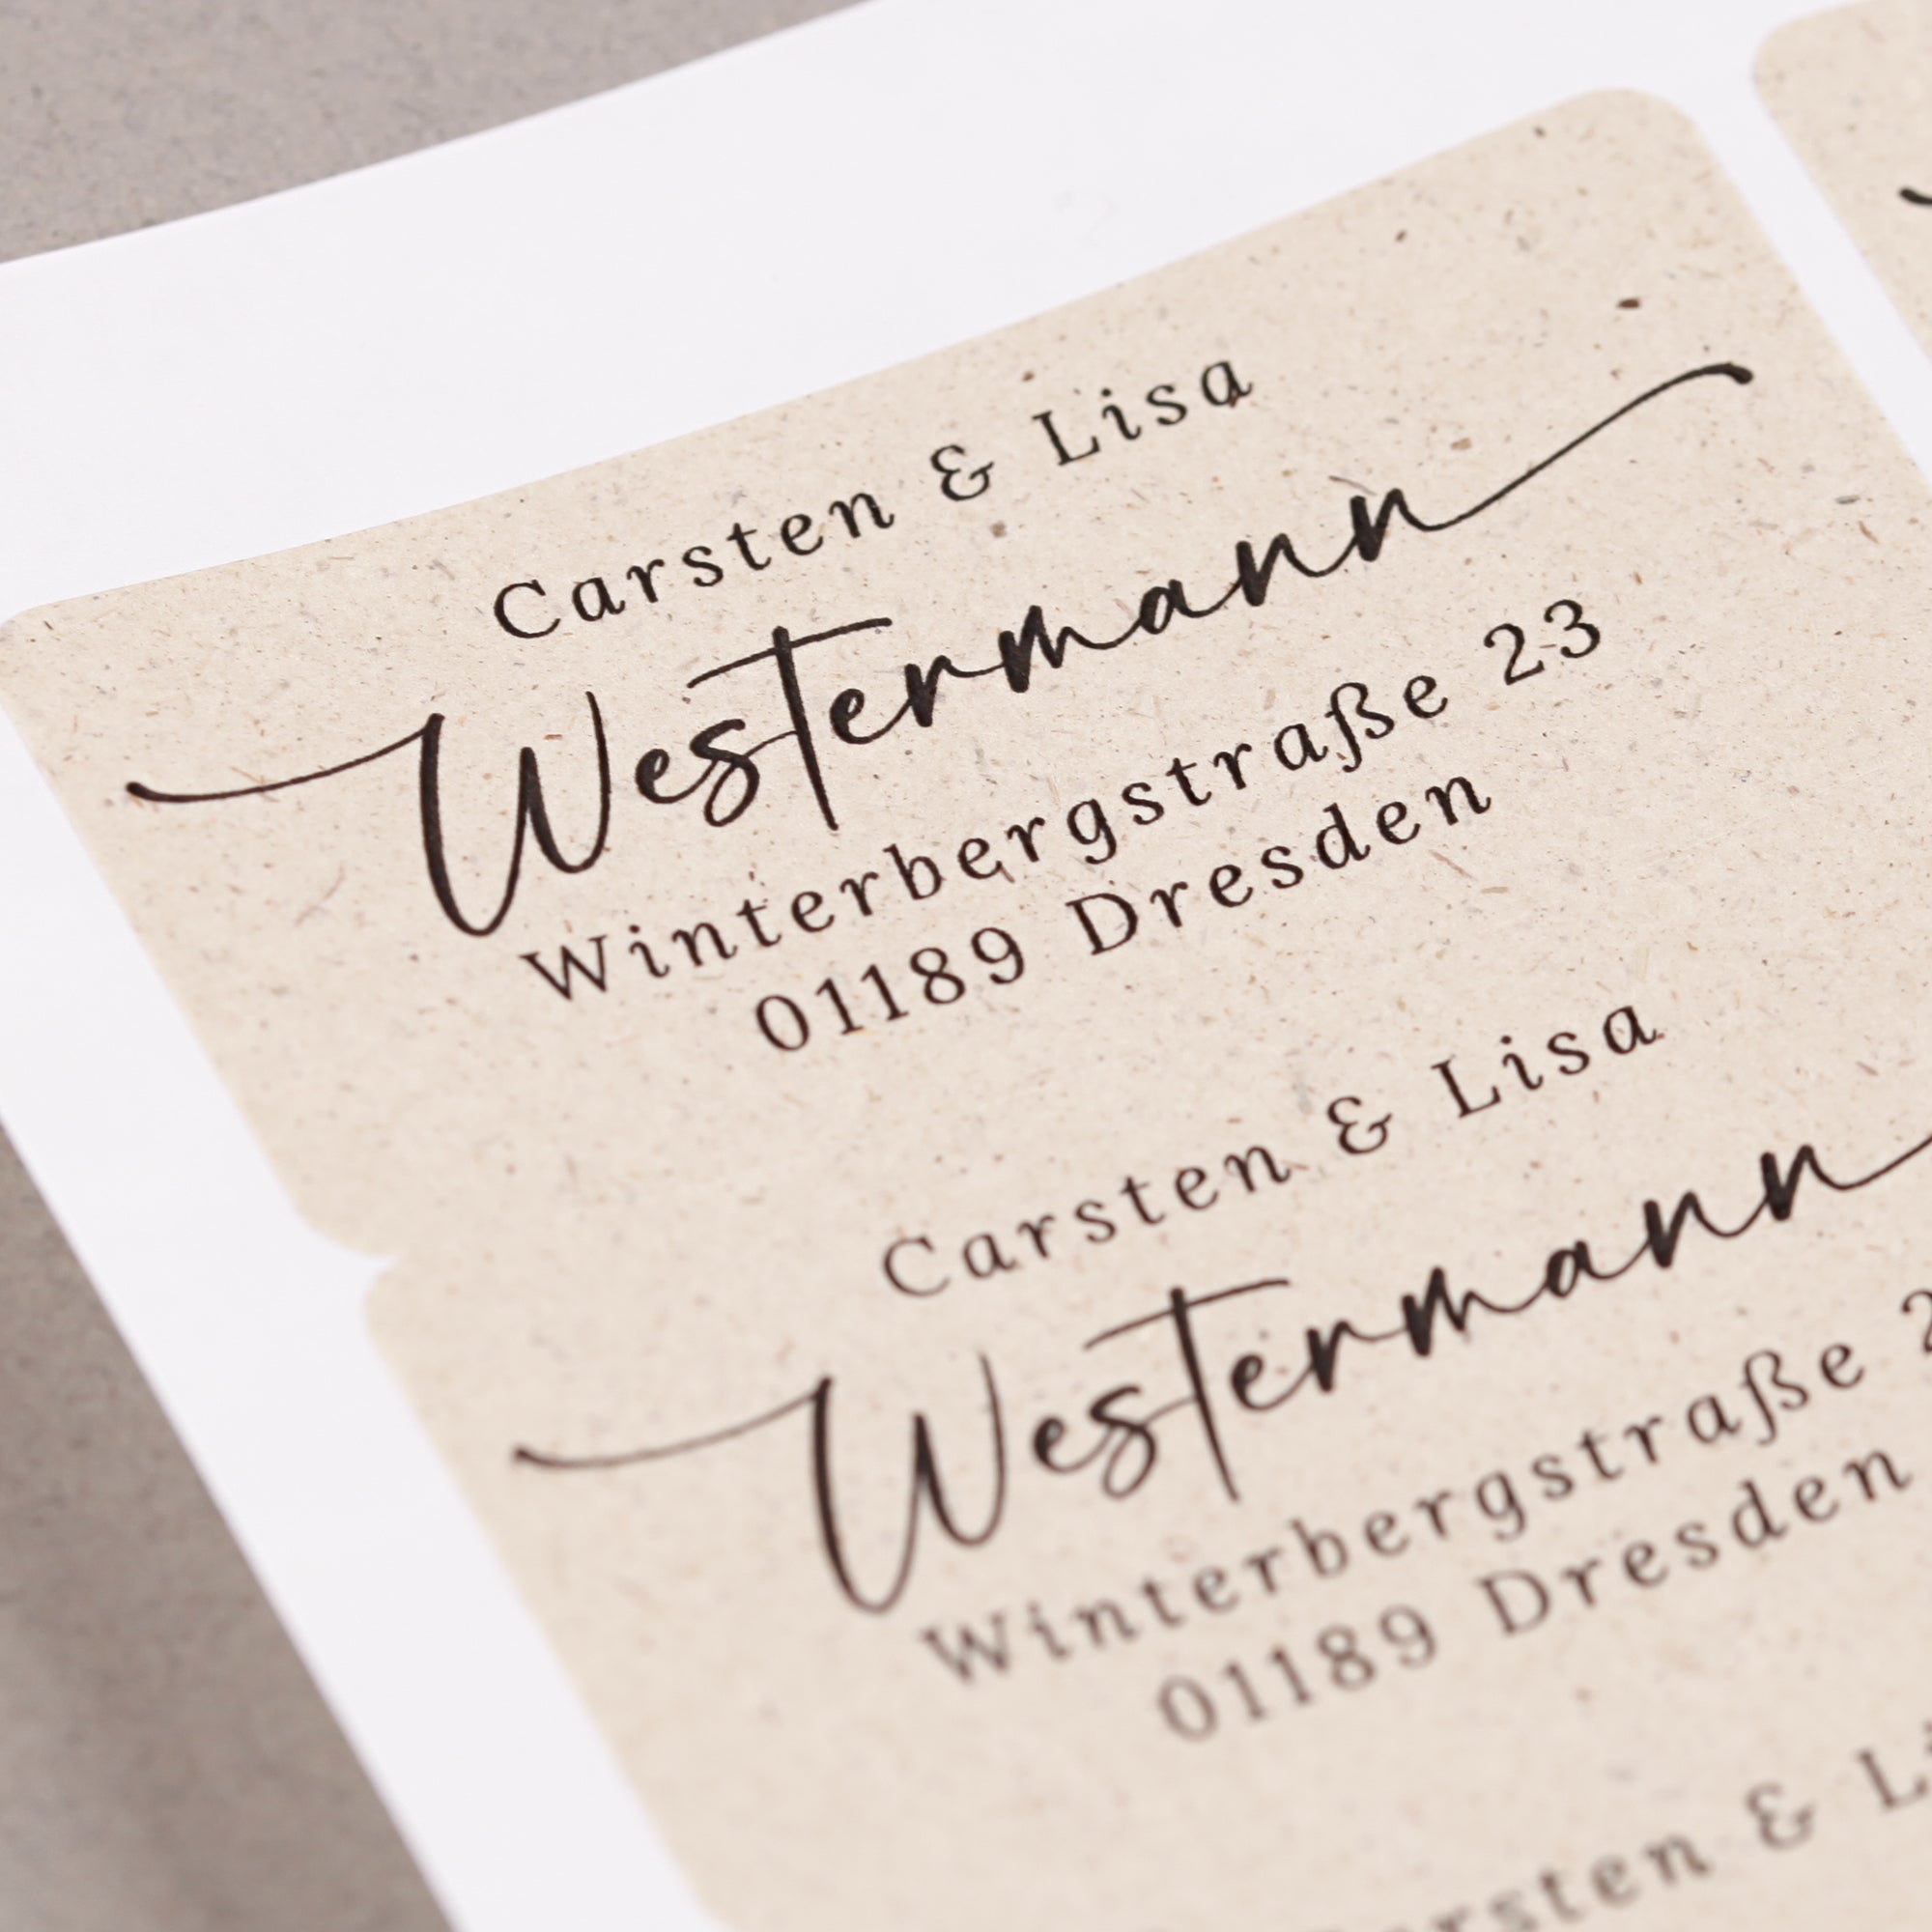 Carsten & Lisa
Westermann
Winterbergstraße 23
01189 Dresden
Carsten & Lisa
Westermann
Winterbergstraße
01189 Dresden
&